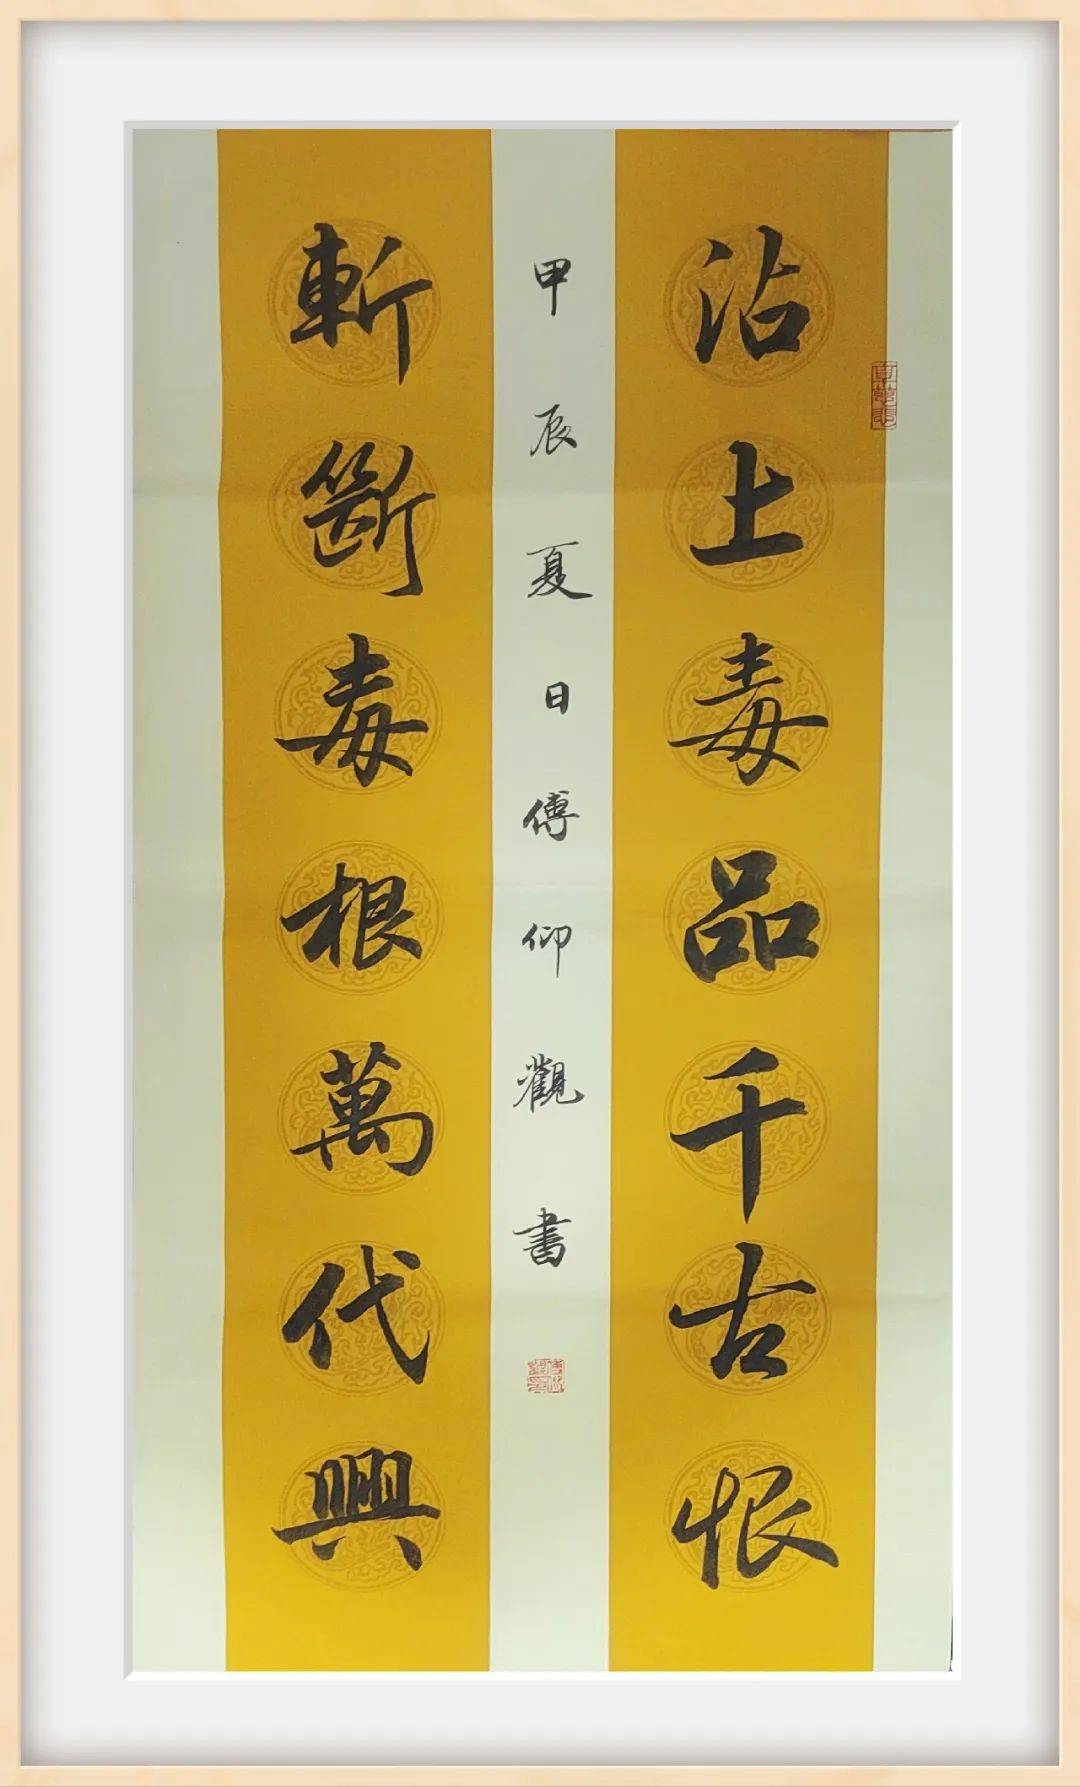 沾上毒品千古恨
斬斷毒根萬代興
甲辰夏日傅仰觀書